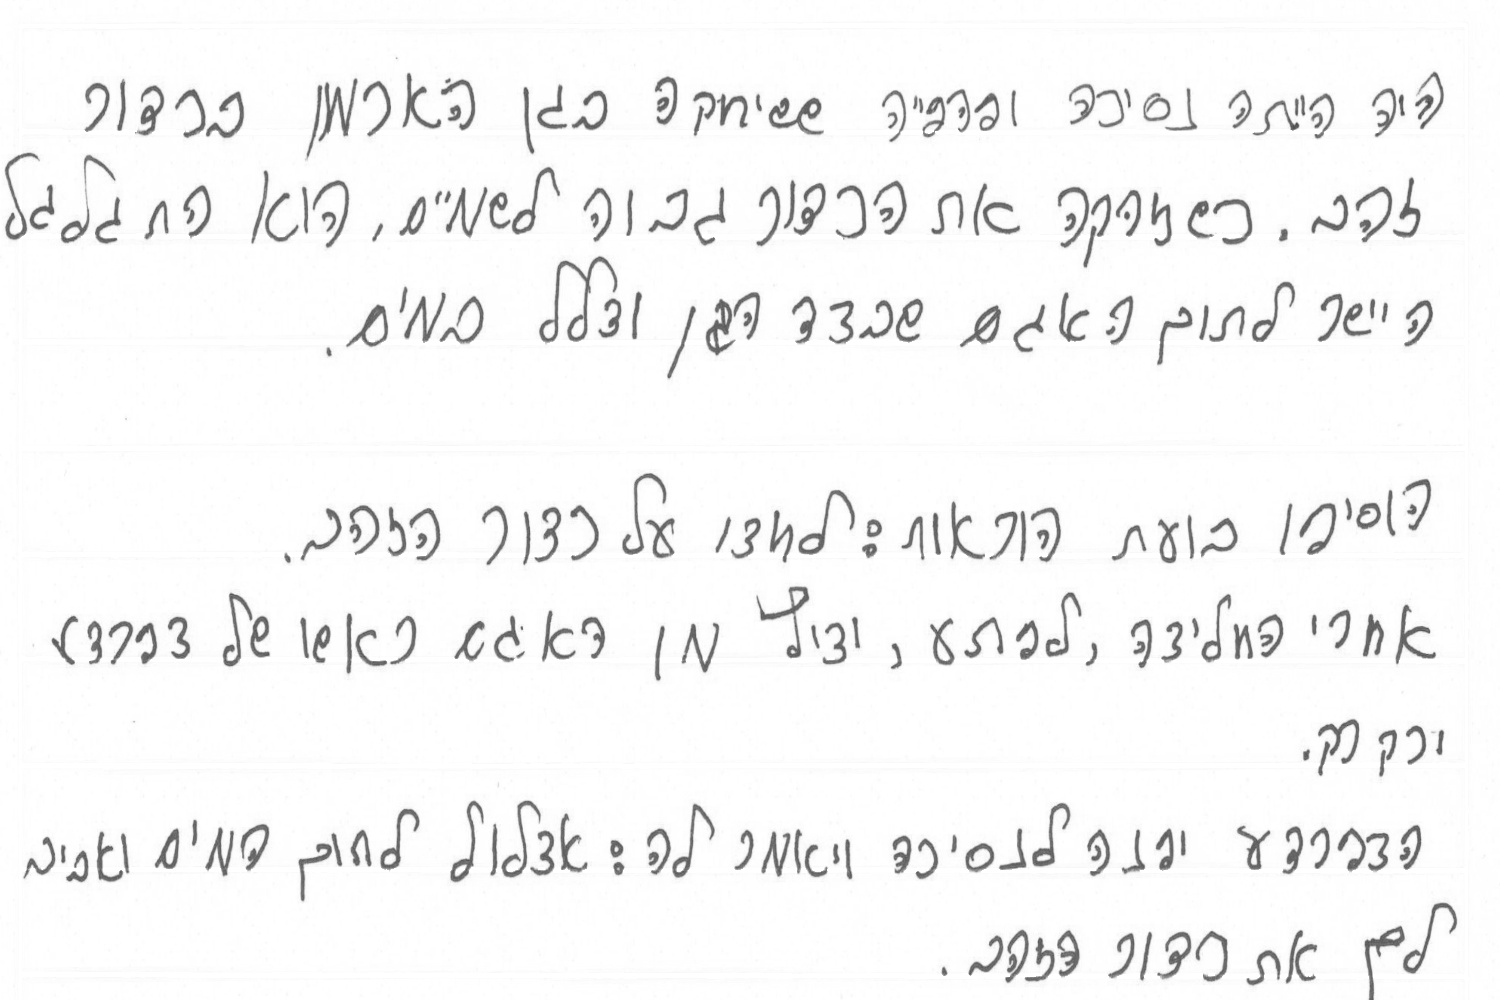 היה הייתה נסיכה ופהפייה ששיחקה בגן הארמון בכדור
זהב. כשזרקה את הכדור גבוה לשמיים, הוא התגלגל
היישר לתוך האגם שבצד הגן וצלל במים.
הוסיפו בועת הוראות: לחצו על כדור הזהב.
אחרי הלחיצה, לפתע, יציץ מן האגם ראשו של צפרדע
ירקרק.
הצפרדע יפנה לנסיכה ויאמר לה: אצלול לתוך המים ואביא
לך את כדור הזהב.